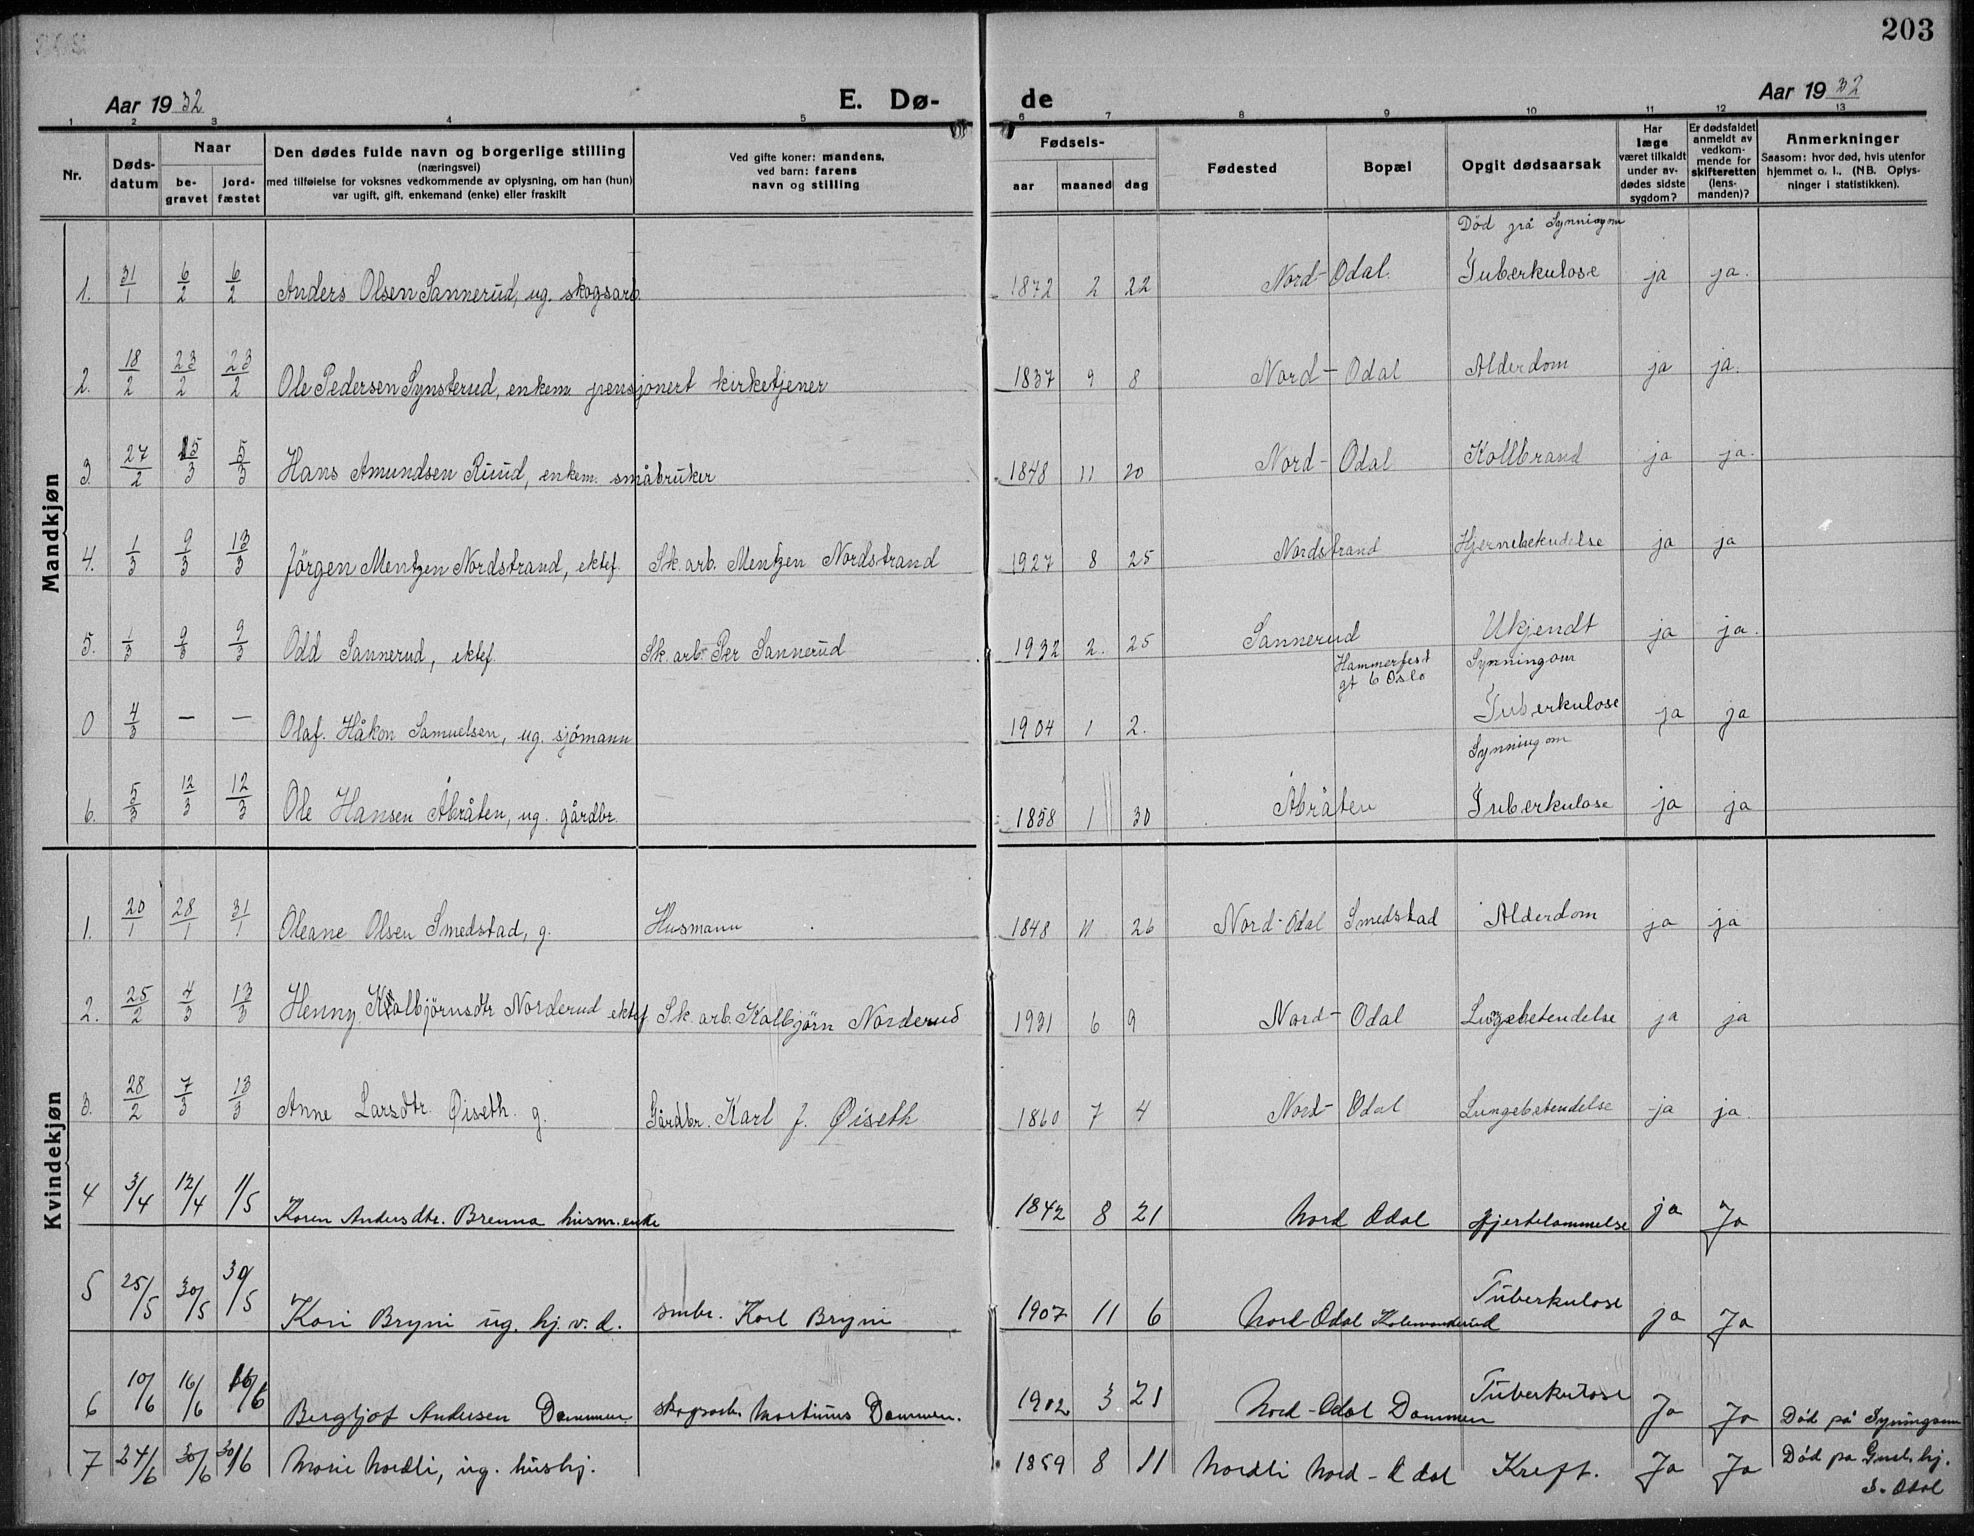 203
Aar 1932 E. Dø- de Aar 1932
1 2 3 4 5 6 7 8 9 10 11 12 13
Nr. Døds-datum Naar be-gravet jord-fæstet Den dødes fulde navn og borgerlige stilling (næringsvei) med tilføielse for voksnes vedkommende av oplysning, om han (hun) var ugift, gift, enkemand (enke) eller fraskilt Ved gifte koner: mandens, ved barn: farens navn og stilling Fødsels- aar maaned dag Fødested Bopæl Opgit dødsaarsak Har læge været tilkaldt under av-dødes sidste sygdom? Er dødsfaldet anmeldt av vedkom-mende for skifteretten (lens-manden)? Anmerkninger Saasom: hvor død, hvis utenfor hjemmet o. l., (NB. Oplys-ninger i statistikken).
Mandkjøn
Død på Synningom
1. 31/1 6/2 6/2 Anders Olsen Sannerud, ug. skogsarb. 1872 2 22 Nord-Odal. Tuberkulose ja ja.
2. 18/2 23/2 23/2 Ole Pedersen Synsterud, enkem. pensjonert kirketjener 1837 9 8 Nord-Odal Alderdom ja ja.
3. 27/2 5/3 5/3 Hans Amundsen Ruud, enkem. småbruker 1848 11 20 Nord-Odal Kollbrand ja ja.
4. 1/3 9/3 13/3 Jörgen Mentzen Nordstrand, ektef. Sk. arb. Mentzen Nordstrand 1927 8 25 Nordstrand Hjernebetendelse ja ja
5. 1/3 9/3 9/3 Odd Sannerud, ektef. Sk. arb. Per Sannerud 1932 2. 25 Sannerud Ukjendt ja ja.
Hammerfest gt 6 Oslo Synningom
0 4/3 — — Olaf. Håkon Samuelsen, ug. sjömann 1904 1 2. Tuberkulose ja ja
Synningom
6. 5/3 12/3 12/3 Ole Hansen Åbråten, ug. gårdbr. 1858 1 30 Åbråten Tuberkulose ja ja
Kvindekjøn
1. 20/1 28/1 31/1 Oleane Olsen Smedstad, g. Husmann 1848 11 26 Nord-Odal Smedstad Alderdom ja ja
2. 25/2 4/3 13/3 Henny Kolbjörnsdtr Norderud ektef Sk. arb. Kolbjörn Norderud 1931 6 9 Nord-Odal Lugebetendelse ja ja
3. 28/2 7/3 13/3 Anne Larsdtr. Øiseth. g. Gårdbr. Karl J. Øiseth 1860 7 4 Nord-Odal Lungebetendelse ja ja.
4 3/4 12/4 1/5 Karen Andersdtr. Brenna husm. enke 1842 8 21 Nord Odal Hjertelammelse ja Ja
5 25/5 30/5 30/5 Kari Bryni ug. hj. v. d. smbr. Karl Bryni 1907 11 6 Nord-Odal Kolemanderud Tuberkulose ja Ja
6 10/6 16/6 16/6 Bergljot Andersen Dammen skogsarb. Martinus Dammen. 1902 3 21 Nord-Odal Dammen Tuberkulose Ja Ja Död på Synningom
7 24/6 30/6 30/6 Marie Nordli, ug. hushj. 1859 8 11 Nordli Nord-Odal Kreft. Ja Ja Död på hj. S. Odal